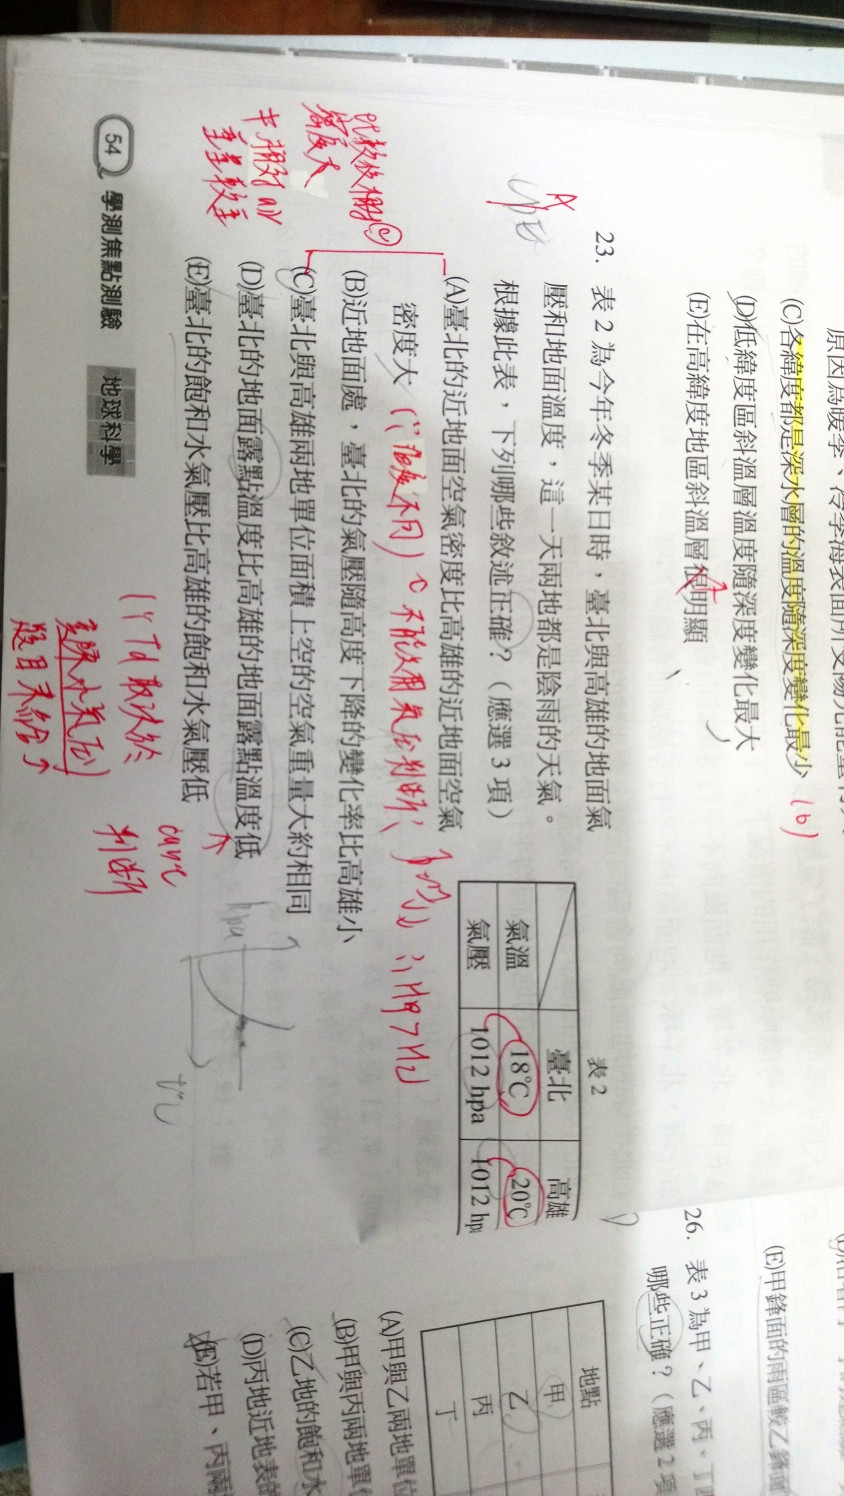 (C)各緯度都是深水層的溫度隨深度變化最少
(D)低緯度區斜溫層溫度隨深度變化最大
(E)在高緯度地區斜溫層很明顯
23. 表2為今年冬季某日時，臺北與高雄的地面氣
壓和地面溫度，這一天兩地都是陰雨的天氣。
根據此表，下列哪些敘述正確？（應選3項）
(A)臺北的近地面空氣密度比高雄的近地面空氣
密度大
(B)近地面處，臺北的氣壓隨高度下降的變化率比高雄小
(C)臺北與高雄兩地單位面積上空的空氣重量大約相同
(D)臺北的地面露點溫度比高雄的地面露點溫度低
(E)臺北的飽和水氣壓比高雄的飽和水氣壓低
表2
臺北 高雄
氣溫 18℃ 20℃
氣壓 1012 hpa 1012 hp
(∵溫度不同)
密度大
(∵Td取決於
題目未給↑
判斷
hpa
t℃
54 學測焦點測驗 地球科學
(E)甲鋒面的雨區較乙鋒面
26. 表3為甲、乙、丙、丁
哪些正確？（應選2項
地點
甲
乙
丙
丁
(A)甲與乙兩地單位
(B)甲與丙兩地單位
(C)乙地的飽和水
(D)丙地近地表的
(E)若甲、丙兩